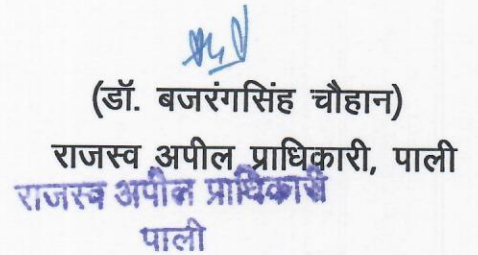 (डॉ. बजरंगसिंह चौहान)
राजस्व अपील प्राधिकारी, पाली
राजस्व अपील प्राधिकारी
पाली